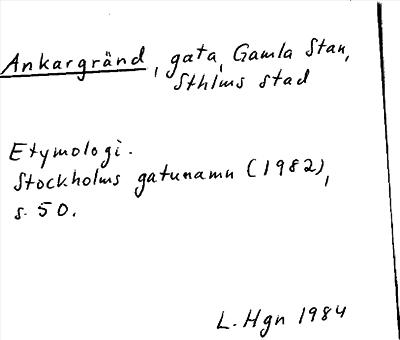 Ankargränd, gata, Gamla Stan,
Sthlms stad
Etymologi.
Stockholms gatunamn (1982),
s. 50.
L. Hgn 1984